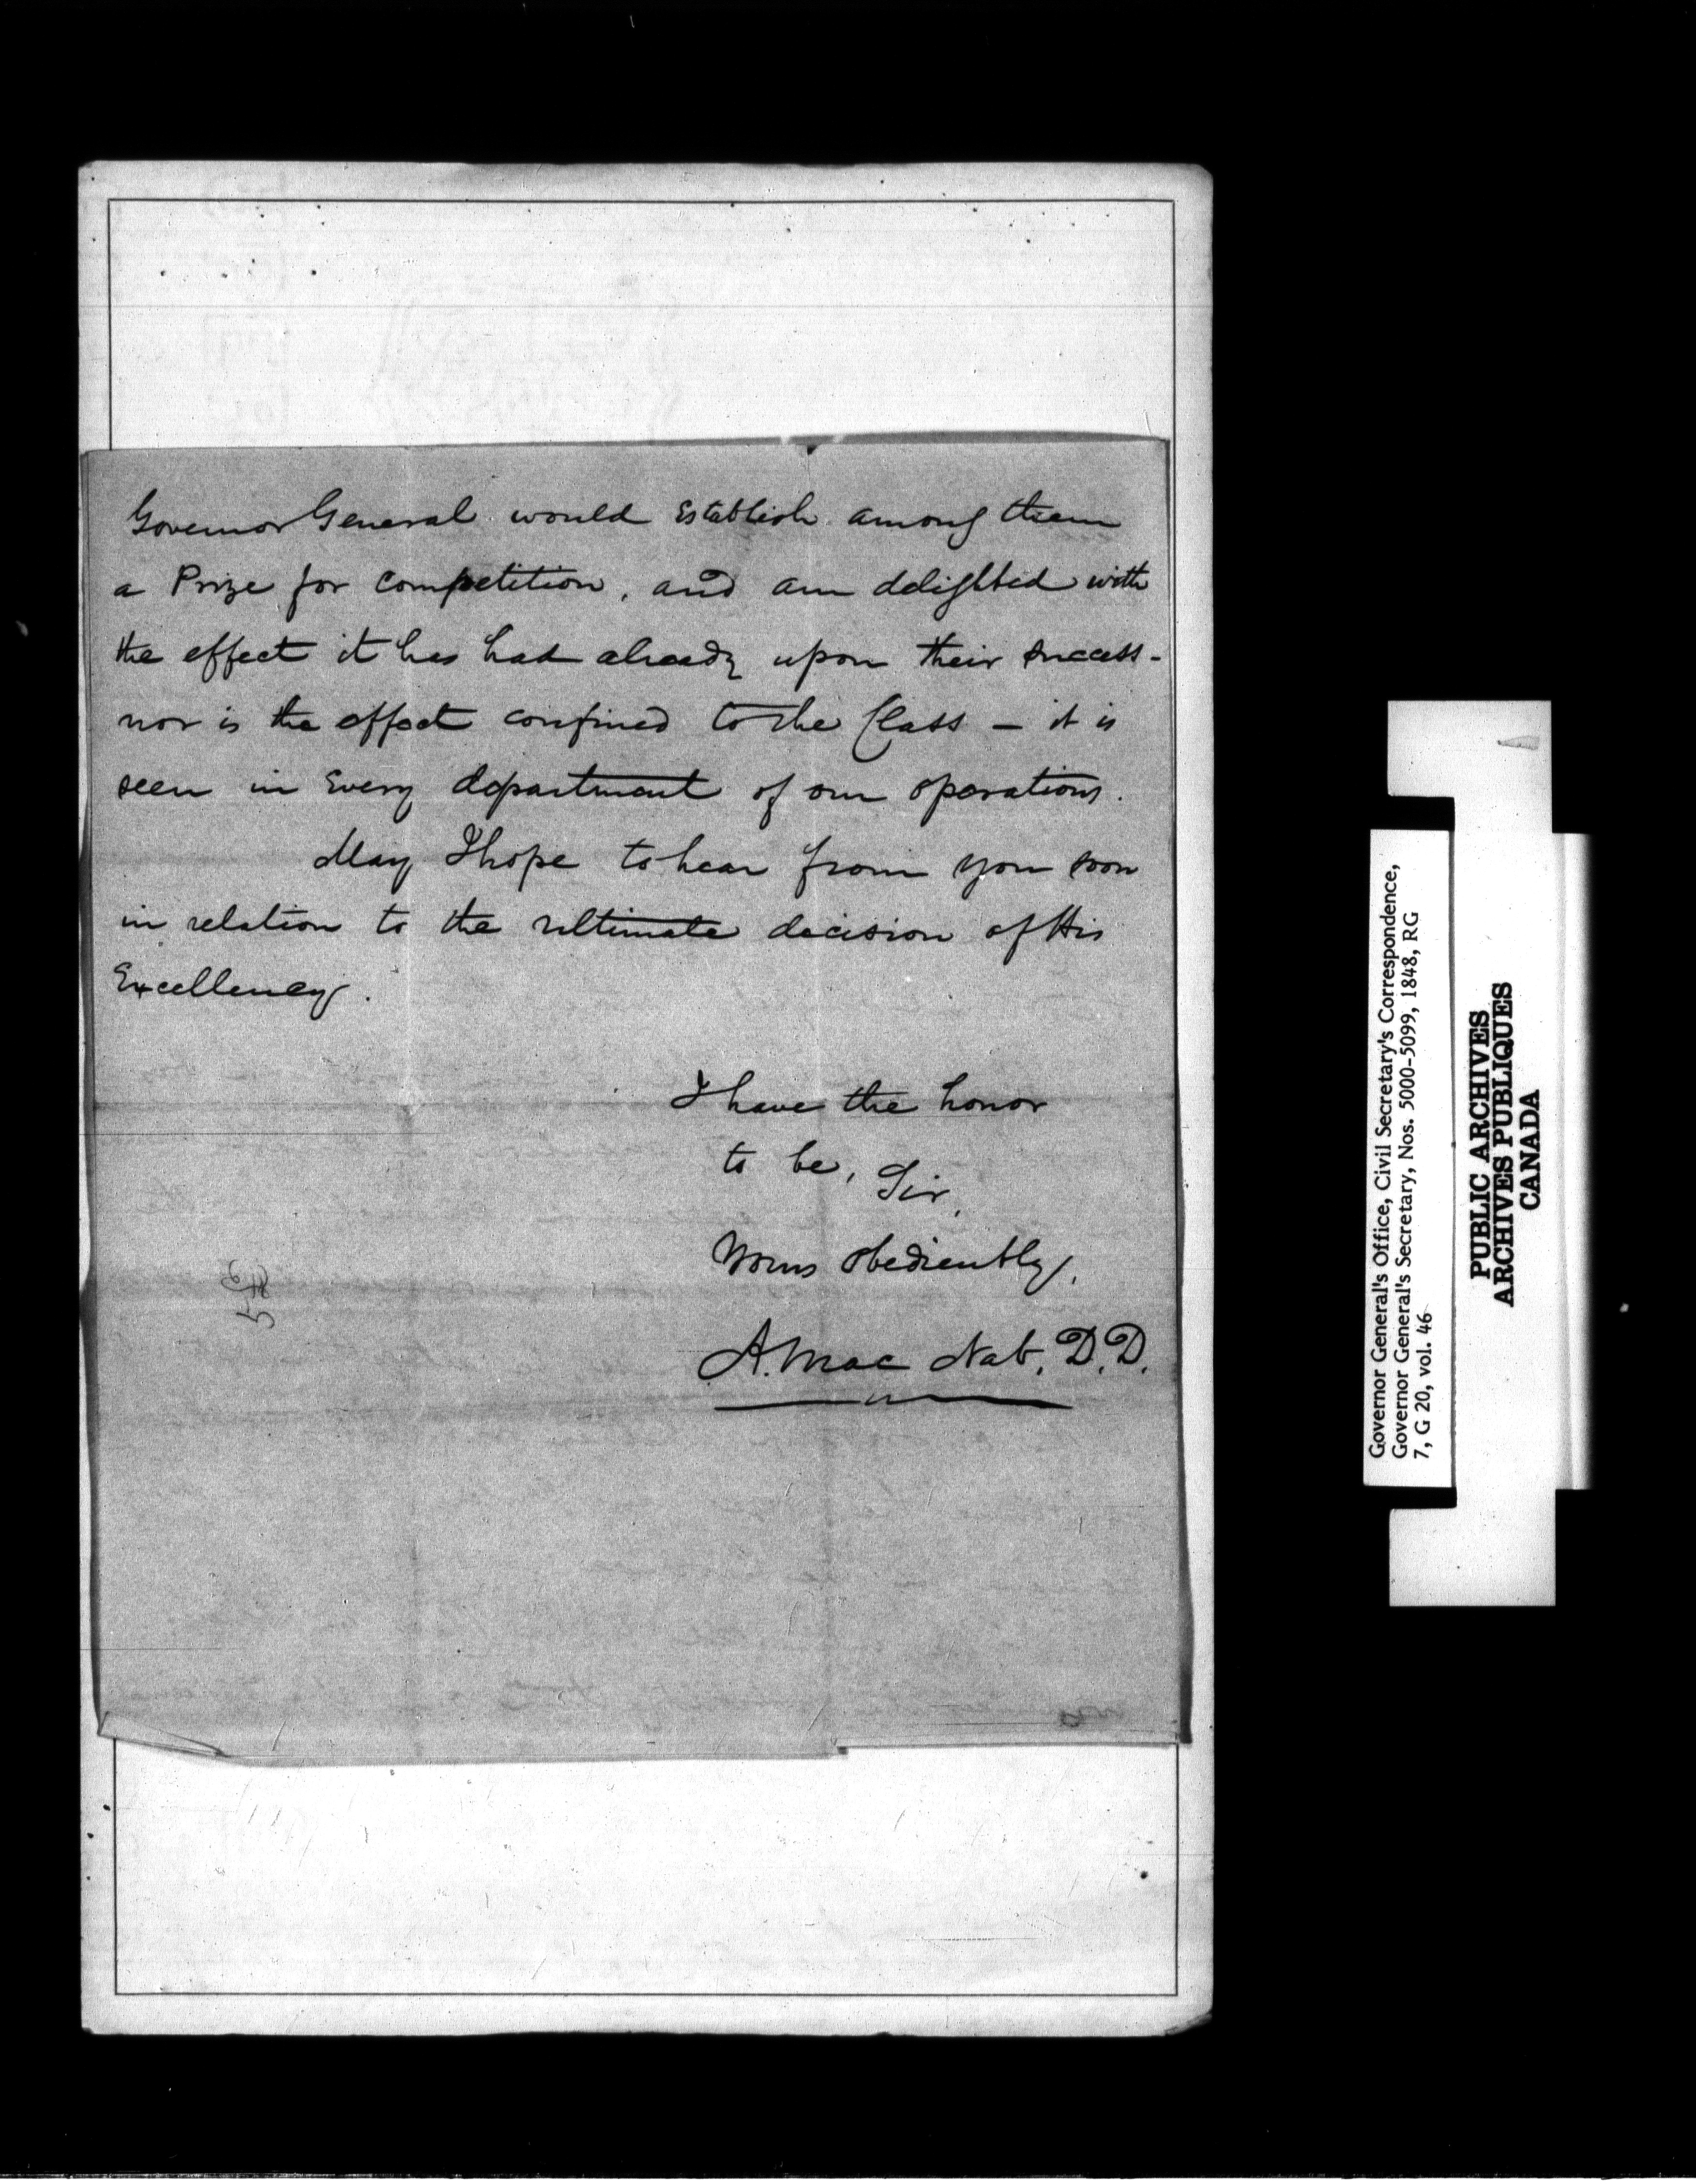 Governor General would Establish among them
a Prize for competition, and am delighted with
the effect it has had already upon their success -
nor is the effect confined to the Class – it is
seen in Every department of our operations.
May I hope to hear from you soon
in relation to the ultimate decision of His
Excellency.
I have the honor
to be, Sir,
Yours obediently,
A. Mac Nab, D.D.
Governor General's Office, Civil Secretary's Correspondence,
Governor General's Secretary, Nos. 5000-5099, 1848, RG
7, G 20, vol. 46
PUBLIC ARCHIVES
ARCHIVES PUBLIQUES
CANADA